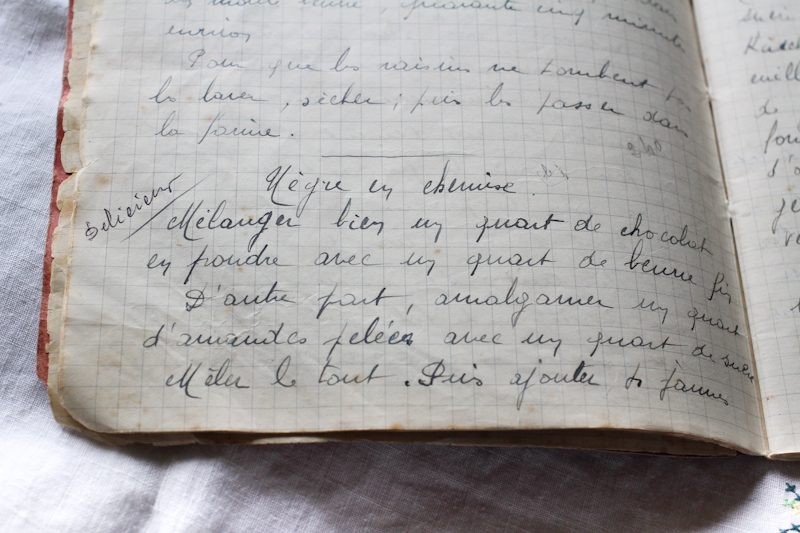 quarante cinq minutes
environ
Pour que les raisins ne tombent pas
les laver, sécher; puis les passer dans
la farine.
Nègre en chemise.
Délicieux
Mélanger bien un quart de chocolat
en poudre avec un quart de beurre fin
D'autre part, amalgamer un quart
d'amandes pelées avec un quart de sucre
Mêler le tout. Puis ajouter jaunes
sucre
Kirsch
de